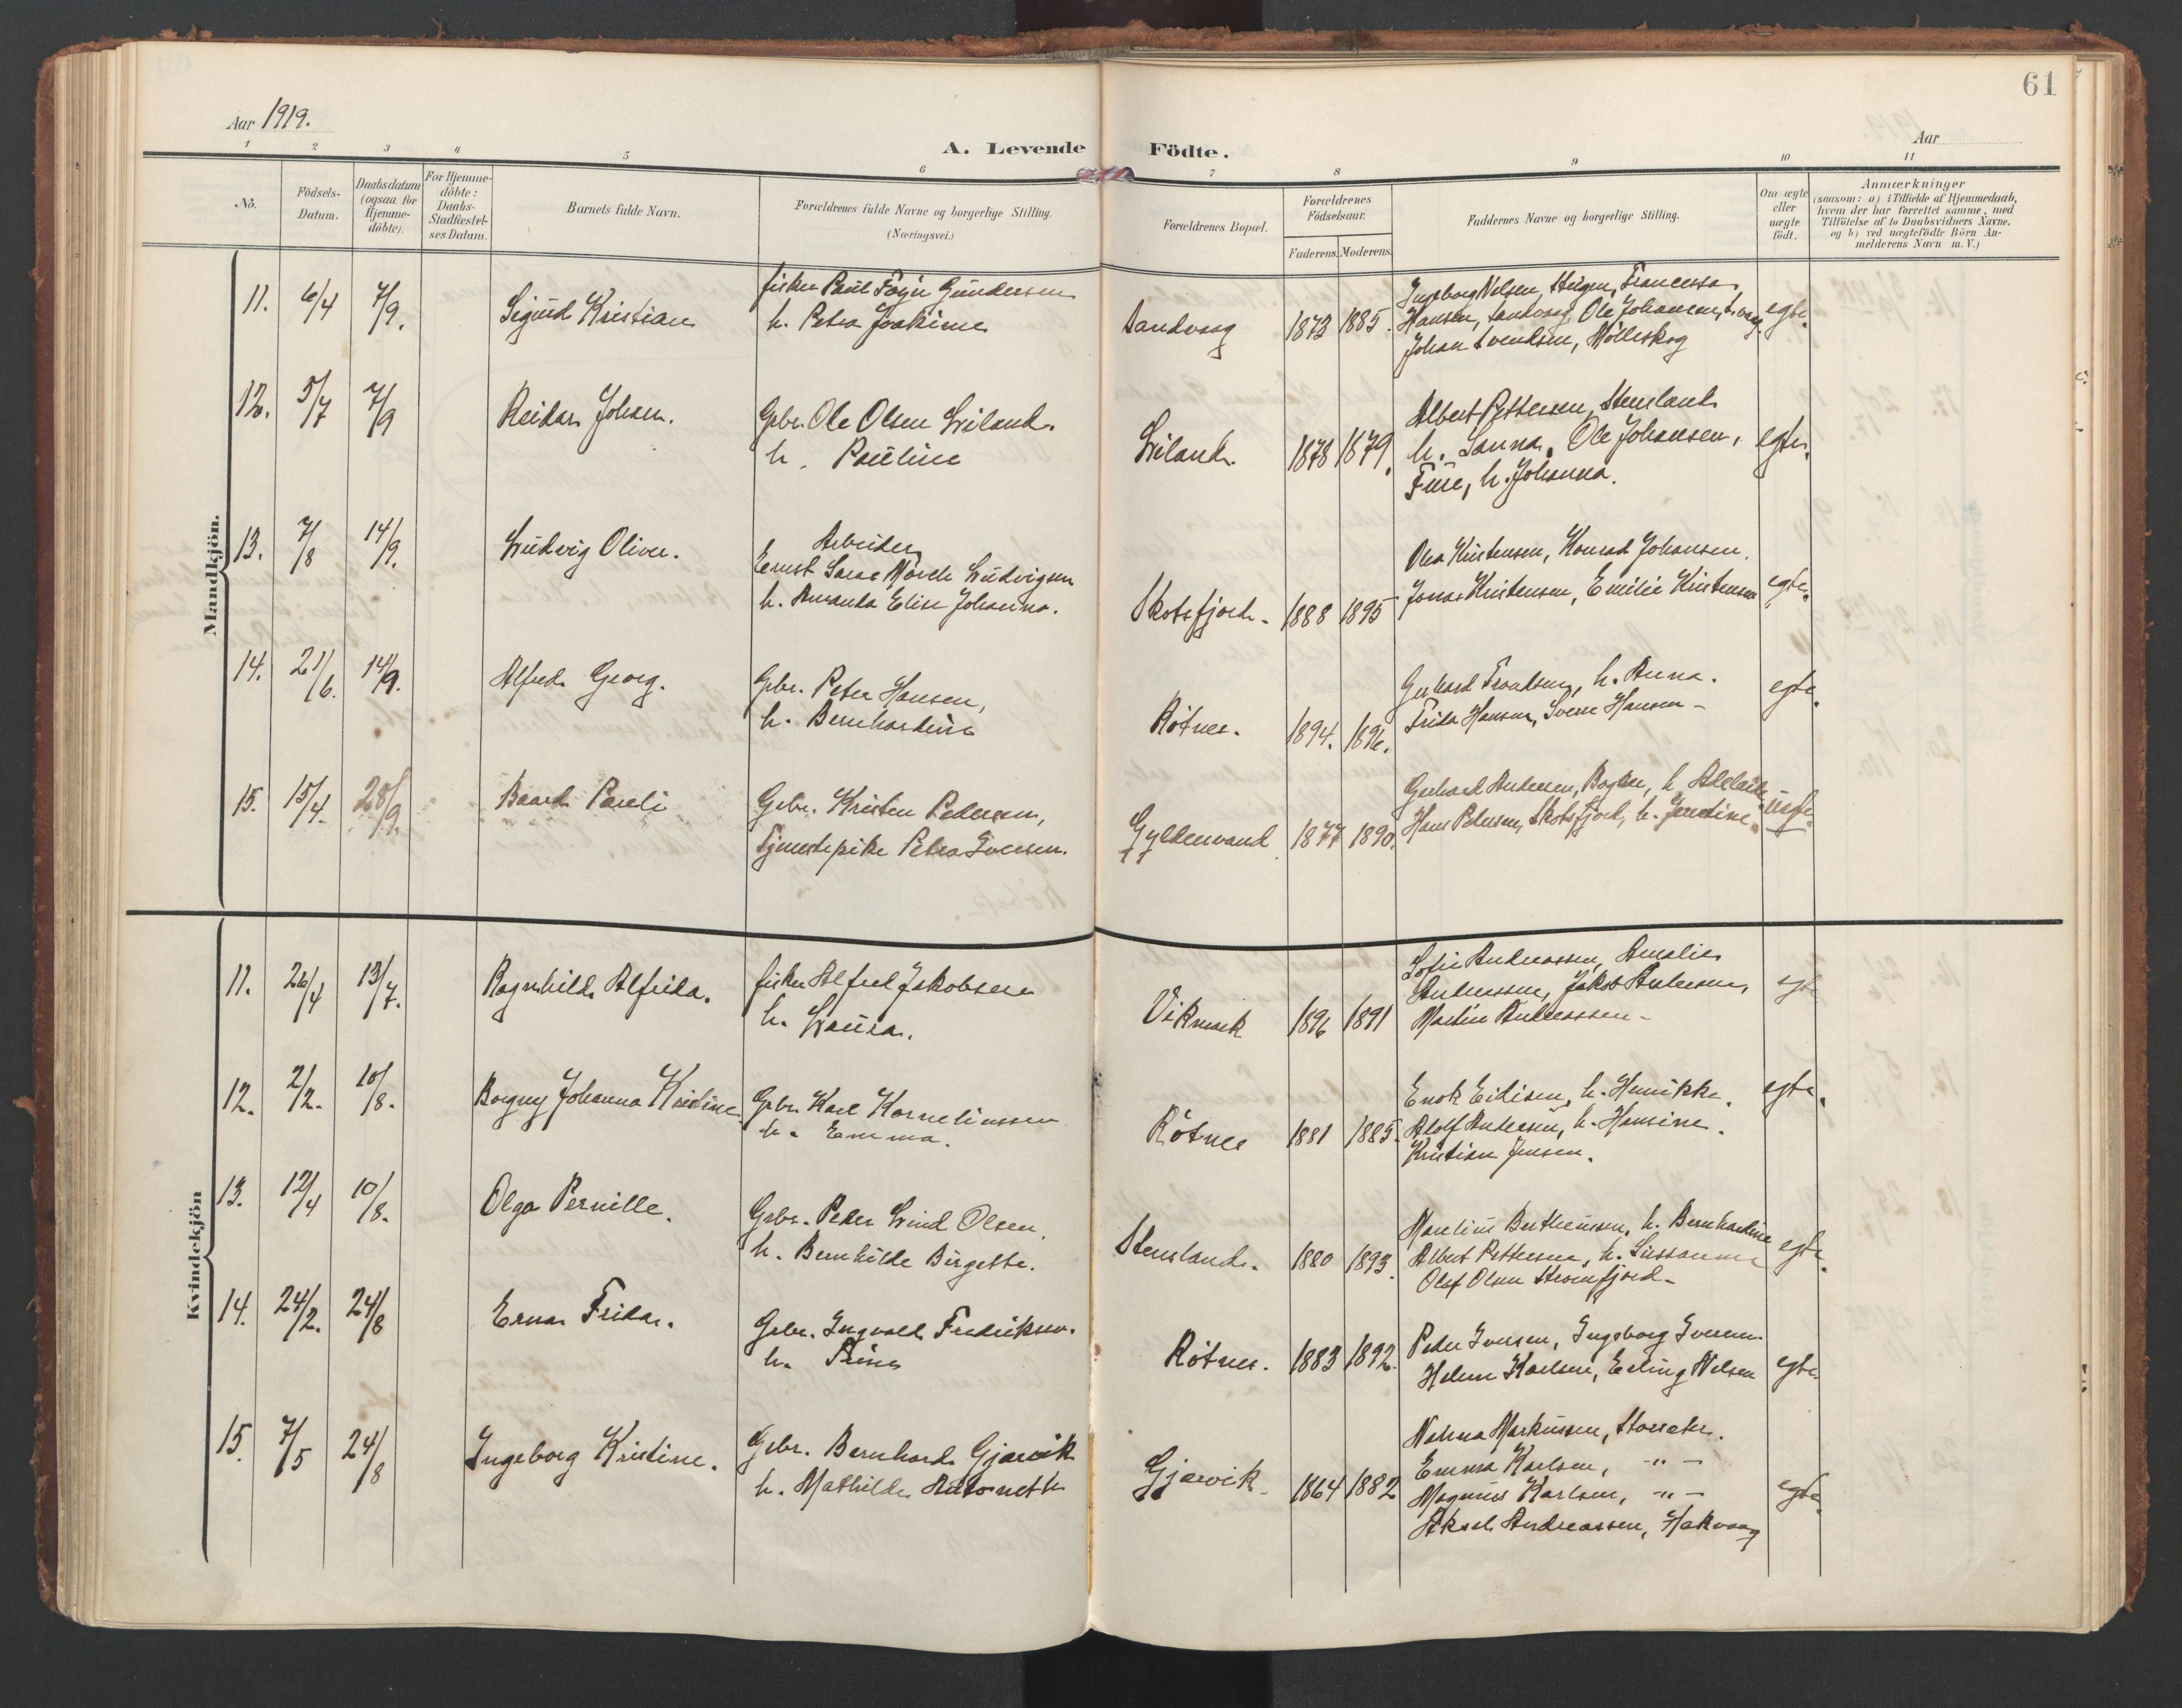 61
Aar 1919.
A. Levende Födte.
Aar
1 2 3 4 5 6 7 8 9 10 11
No.
Födsels-Datum.
Daabsdatum (ogsaa for Hjemme-döbte).
For Hjemme-döbte: Daabs-Stadfæstel-ses Datum.
Barnets fulde Navn.
Forældrenes fulde Navne og borgerlige Stilling.
(Næringsvei.)
Forældrenes Bopæl.
Forældrenes Födselsaar.
Faderens. Moderens.
Faddernes Navne og borgerlige Stilling.
Om ægte eller uægte födt.
Anmærkninger
(saasom: a) i Tilfælde af Hjemmedaab, hvem der har forrettet samme, med Tilföielse af to Daabsvidners Navne. og b) ved uægtefödte Börn An-melderens Navn m. V.)
Mandkjön.
11. 6/4 7/9. Sigurd Kristian
fisker Paul Foyn Gundersen
h. Petra Joakime
Sandvaag 1873 1885.
Ingeborg Nilsen, Francensa
Hansen, Sandvaag, Ole Johansen,
Johan Svendsen, Mölleskog
egte.
12. 5/7 7/9 Reidar Johan.
Gbr. Ole Olsen Liland.
h. Pauline
Liland. 1878 1879.
Albert Pettersen, Stensland
h. Sanna. Ole Johansen,
Fure, h. Johanna.
egte.
13. 7/8 14/9. Ludvig Oliver.
Arbeider
Ernst Ludvigsen
h. Amanda Elise Johanna.
Skotsfjord. 1888 1895
Olea Kristensen, Konrad Johansen.
Jonas Kristensen, Emilie Kristensen
egte.
14. 21/6. 14/9. Alfred Georg.
Gbr. Peter Hansen,
h. Bernhardine
Rötnes. 1894. 1896.
Gerhard Trondsen, h. Anna.
Frida Hansen, Sverre Hansen
egte.
15. 15/4. 28/9. Baard Pareli
Gbr. Kristen Pedersen,
Tjenestepike Petra Iversen.
Gyldenvand 1877 1890.
Gerhard Andersen, Bogen, h. Adelaide
Hans Pedersen, Skotsfjord, h. Jensine.
uegte.
Kvindekjön
11. 26/4 13/7. Ragnhild Alfrida.
fisker Alfred Jakobsen
h. Laura.
Vikmark 1896 1891
Sofie Andreassen, Amalie
Andreassen, Jakob Andersen,
Martin Andreassen
egte
12. 2/2. 10/8. Borgny Johanna Kristine
Gbr. Karl Korneliussen
h. Emma.
Rötnes 1881 1885.
Enok Eidisen, h. Henrikke.
Adolf Andersen, h. Hansine.
Kristian Jensen.
egte.
13. 12/4 10/8. Olga Pernille.
Gbr. Peder Lind Olsen.
h. Bernhilde Birgette.
Stensland. 1880 1893.
Marelius Bertheussen, h. Bernhardine
Albert Pettersen, h. Sussanna
Olaf Olsen Straumfjord
egte.
14. 24/2. 24/8 Erna Frida.
Gbr. Ingvald Fredriksen.
h. Trine
Rötnes. 1883 1892.
Peder Iversen, Ingeborg Iversen.
Helene Karlsen, Erling Nilsen
egte.
15. 7/5 24/8 Ingeborg Kristine.
Gbr. Bernhard Gjærvik
h. Mathilde Antonette
Gjærvik 1864 1882
Nelma Markussen, Storsæter.
Emma Karlsen, -"-
Magnus Karlsen, -"-
Aksel Andreassen, Hakvaag
egte.